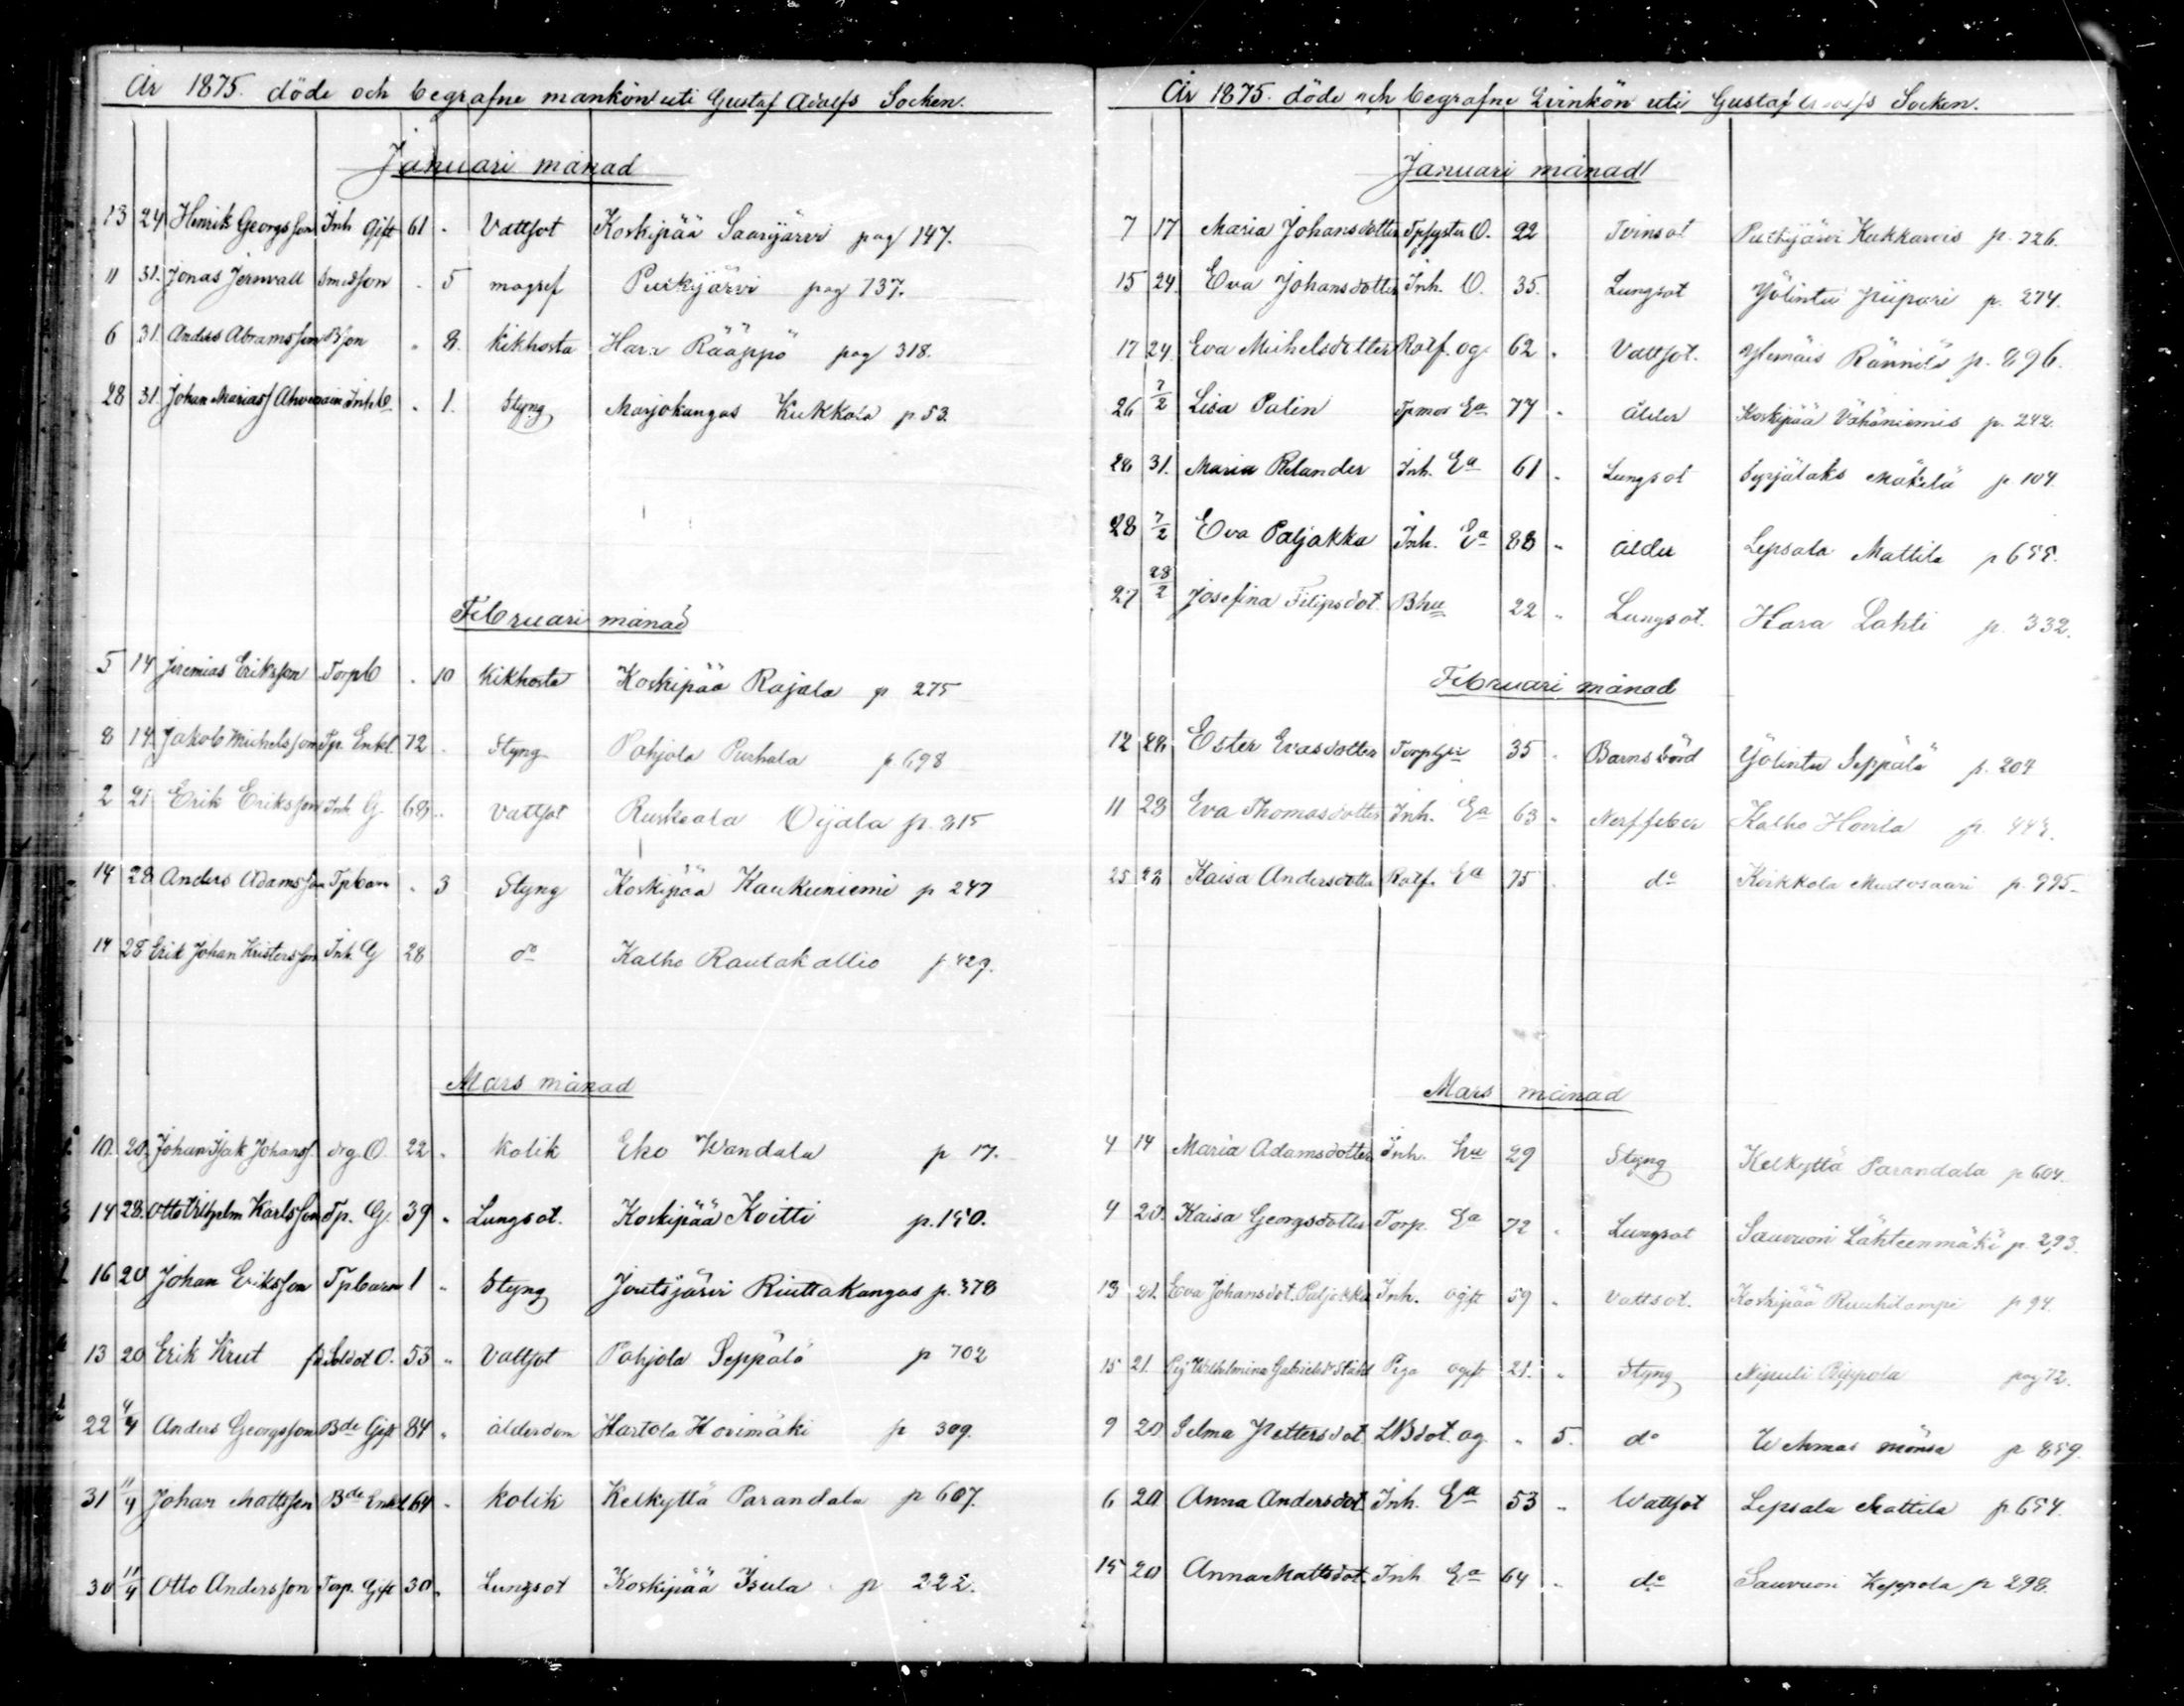 År 1875. döde och begrafne mankön uti Gustaf Adolfs Socken.
Januari månad
13 24 Henrik Georgsson Inh Gift 61 " Vattsot Koskipää Saarijärvi pag 147.
11 31. Jonas Jernvall Smedson " 5 magref Purkijärvi pag 737.
6 31. Anders Abramsson Bson " 8. Kikhosta Hara Rääppö pag 318.
28 31. Johan Marias Inhb " 1. Styng Marjokangas Kukkola p 53.
Februari månad
5 14 Jeremias Eriksson Torpb " 10 Kikhosta Koskipää Rajala p 275
8 14 Jakob Michelsson Tp. Enkl. 72 " Styng Pohjola Purhala p 698
2 21 Erik Eriksson Inh G. 68 " Vattsot Ruskeala Oijala p. 815
14 28 Anders Adamsson Tpbarn " 3 Styng Koskipää Kaukuniemi p 247
14 28 Erik Johan Kristersson Inh G 28 do Kalho Rautakallio p 429.
Mars månad
10. 20. Johan Isak Johanss. drg O. 22 " Kolik Eko Wandala p 17.
14 28. Otto Vilhelm Karlsson Tp. G. 39 " Lungsot. Koskipää Koitti p. 150.
16 20 Johan Eriksson Tpbarn 1 " Styng Joutsjärvi Riuttakangas p. 378
13 20 Erik Krut fd Soldat O. 53 " Vattsot Pohjola Seppälä p 702
22 4/4 Anders Georgsson Bde Gift 84 " ålderdom Hartola Horimäki p 309.
31 11/4 Johan Mattsson Bde Enkl 64 " Kolik Kelkyttä Parandala p 607.
30 11/4 Otto Andersson Torp. Gift 30 " Lungsot Koskipää Isula p 222.
År 1875. döde och begrafne Qvinkön uti Gustaf Adolfs Socken.
Januari månad
7 17 Maria Johansdotter Tpsyster O. 22 Tvinsot Putkijärvi Kukkarois p. 726.
15 24. Eva Johansdotter Inh. O. 35. Lungsot Yölintu Piipari p. 274.
17 24. Eva Michelsdotter Rotf. og 62 " Vattsot. Yhemäis Rännilä p. 896.
26 7/2 Lisa Palin Tpmor Ea 77 " ålder Koskipää Vähäniemis p. 242.
28 31. Maria Relander Inh. Ea 61 " Lungsot Syrjälaks Mäkelä p 104.
28 7/2 Eva Paljakka Inh. Ea 88 " ålder Lepsala Mattila p 655.
27 28/2 Josefina Filipsdot. Bhu 22 " Lungsot. Hara Lahti p. 332.
Februari månad
12 28 Ester Evasdotter 35 " Barnsbörd Yölintu Seppälä p. 204
11 28 Eva Thomasdotter Inh. Ea 63 " Nerffeber Kalho Hovila p. 443.
25 28 Kaisa Andersdotter Rotf. Ea 75 " do Koikkola Murtosaari p. 995.
Mars månad
4 14 Maria Adamsdotter Inh. hu 29 Styng Kelkyttä Parandala p 604.
4 20. Kaisa Georgsdotter Torp. Ea 72 " Lungsot Sauvuori Lähteenmäki p. 293.
13 21. Eva Johansdot. Paljakka Inh. ogift 59 " Vattsot. Koskipää p 94.
15 21. Wilhelmina Gabrielsd Ståhl Piga ogift 21. " Styng Nipuli pag 72.
9 20 Selma Pettersdot. LBdot. og. " 5. do p 859.
6 20 Anna Andersdot. Inh. Ea 53 " Wattsot Lepsala Mattila p. 654.
15 20 Anna Mattsdot. Inh Ea 64 " do Sauvuori Keppola p 298.